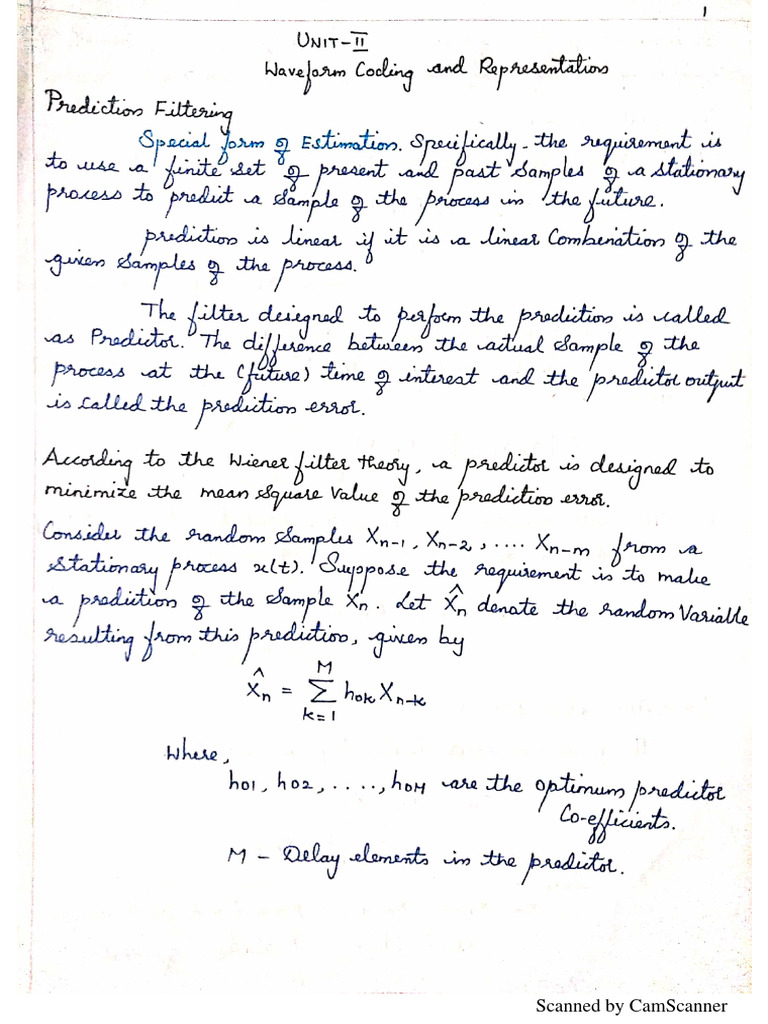 1
UNIT-II
Waveform Coding and Representation
Prediction Filtering
Special form of Estimation. Specifically-the requirement is
to use a finite set of present and past samples of a stationary
process to predict a sample of the process in the future.
prediction is linear if it is a linear Combination of the
given samples of the process.
The filter designed to perform the prediction is called
as Predictor. The difference between the actual sample of the
process at the (future) time of interest and the predictor output
is called the prediction error.
According to the Wiener filter theory, a predictor is designed to
minimize the mean square value of the prediction error.
Consider the random samples Xn-1, Xn-2, .... Xn-m from a
stationary process x(t). Suppose the requirement is to make
a prediction of the sample Xn. Let X̂n denote the random variable
resulting from this prediction, given by
X̂n = M∑k=1 hok Xn-k
where,
ho1, ho2, ....., hoM are the optimum predictor
Co-efficients.
M - Delay elements in the predictor.
Scanned by CamScanner